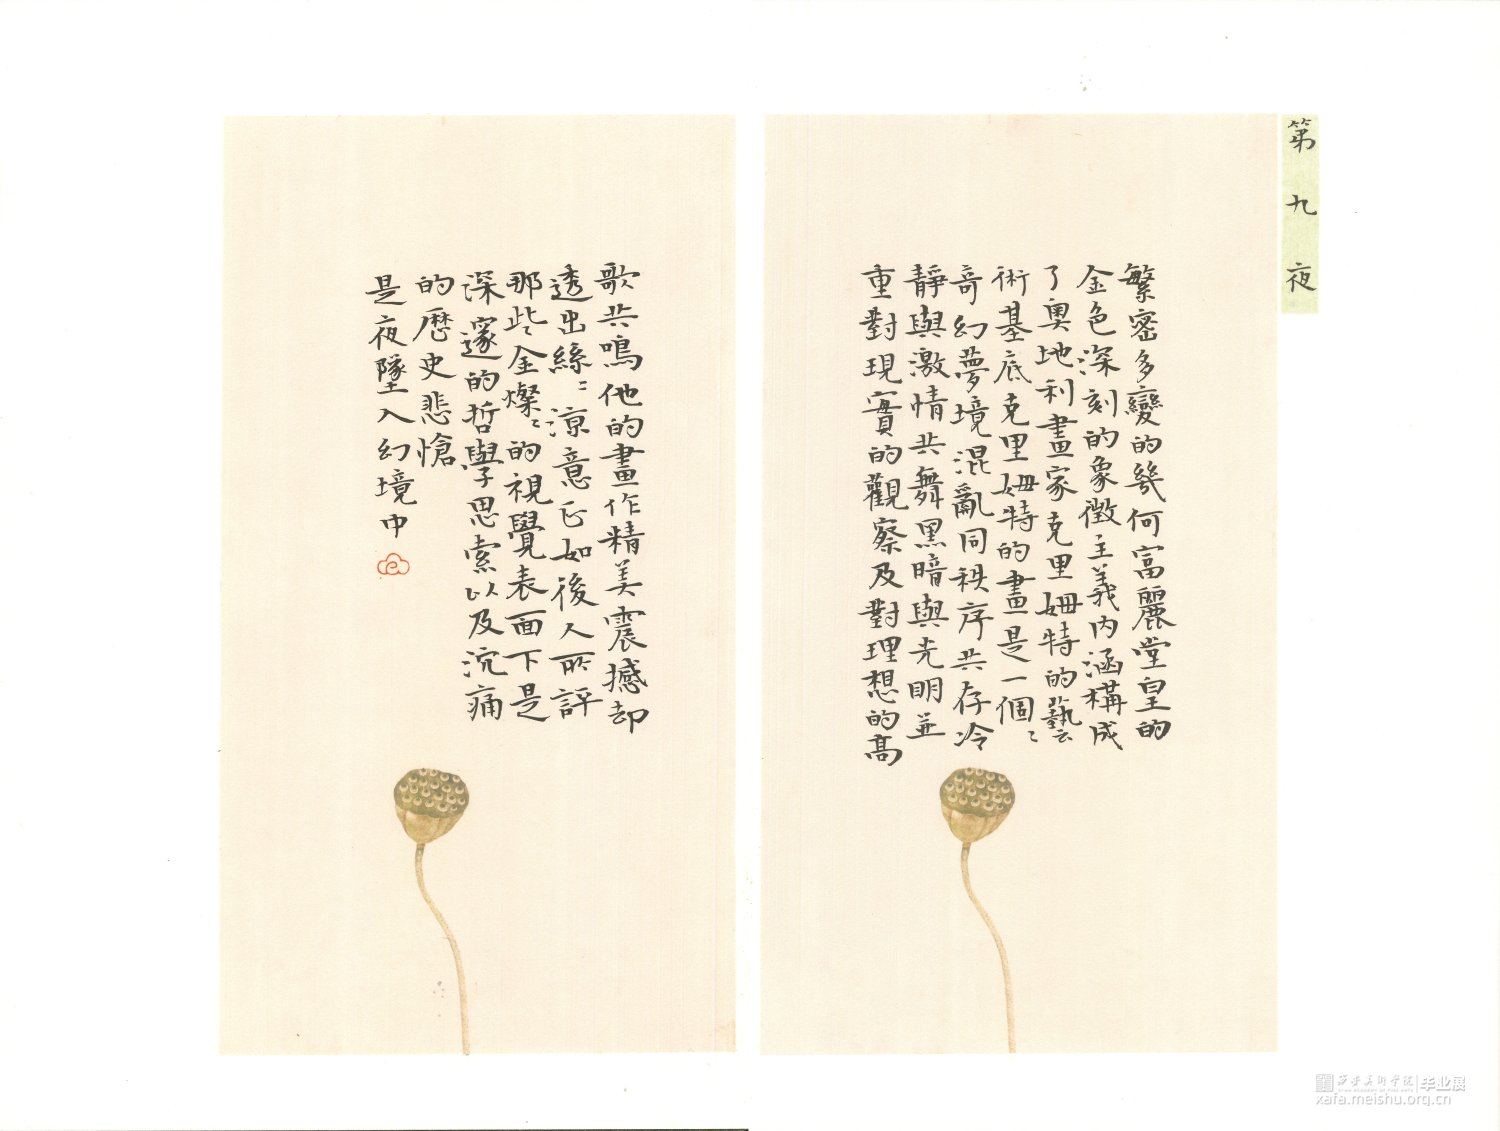 第九夜
繁密多變的幾何富麗堂皇的
金色深刻的象徵主義內涵構成
了奧地利畫家克里姆特的藝
術基底克里姆特的畫是一個〻
奇幻夢境混亂同秩序共存冷
靜與激情共舞黑暗與光明並
重對現實的觀察及對理想的高
歌共鳴他的畫作精美震撼却
透出絲〻涼意正如後人所評
那些金燦〻的視覺表面下是
深邃的哲學思索以及沉痛
的歷史悲愴
是夜墜入幻境中
西安美術學院 毕业展
xafa.meishu.org.cn